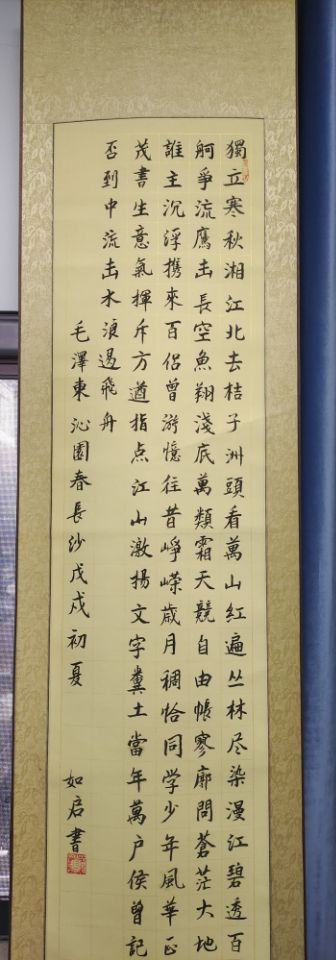 獨立寒秋湘江北去桔子洲頭看萬山紅遍丛林尽染漫江碧透百
舸爭流鷹击長空魚翔淺底萬類霜天競自由悵寥廓問蒼茫大地
誰主沉浮携來百侣曾游憶往昔崢嶸歲月稠恰同学少年風華正
茂書生意氣揮斥方遒指点江山激揚文字糞土當年萬户侯曾記
否到中流击水浪遏飛舟
毛澤東沁園春長沙戊戍初夏
如启書